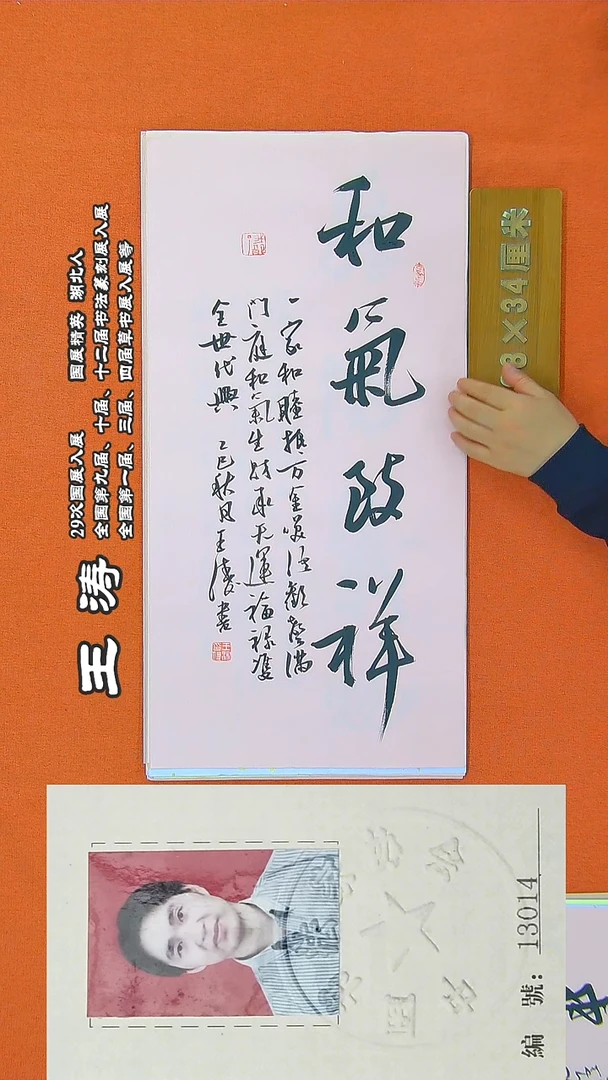 和氣致祥
一家和睦抵万金笑语歡聲满
门庭和氣生财承天運福禄雙
全世代興 乙巳秋月王濤書
8×34厘米
王涛
29次国展入展 国展精英 湖北人
全国第九届、十届、十二届书法篆刻展入展
全国第一届、三届、四届草书展入展等
編號：13014